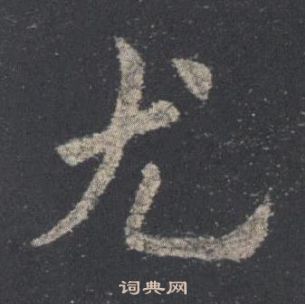 尤
词典网